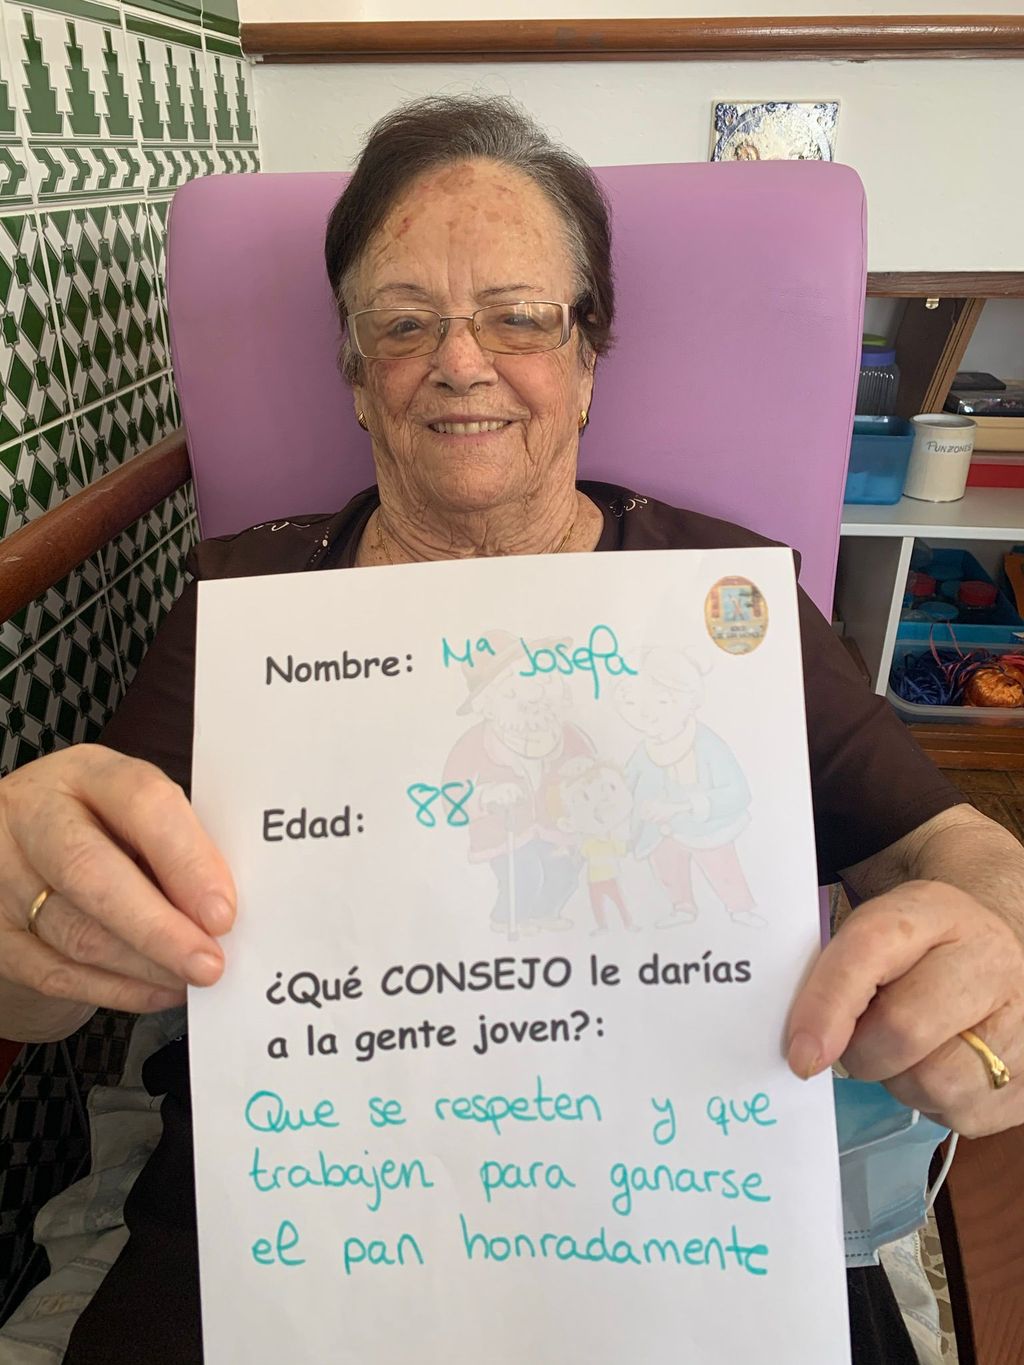 PUNZONES
Nombre: Mª Josefa
Edad: 88
¿Qué CONSEJO le darías
a la gente joven?:
Que se respeten y que
trabajen para ganarse
el pan honradamente